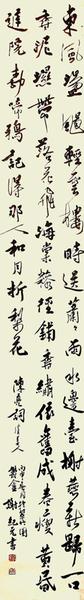 東風蕩颺輕雲縷時送蕭蕭雨水邊臺榭燕新歸一口
香泥濕帶落花飛海棠糝徑鋪香繡依舊成春瘦黃昏
庭院柳啼鴉記得那人和月折梨花 陳亮詞